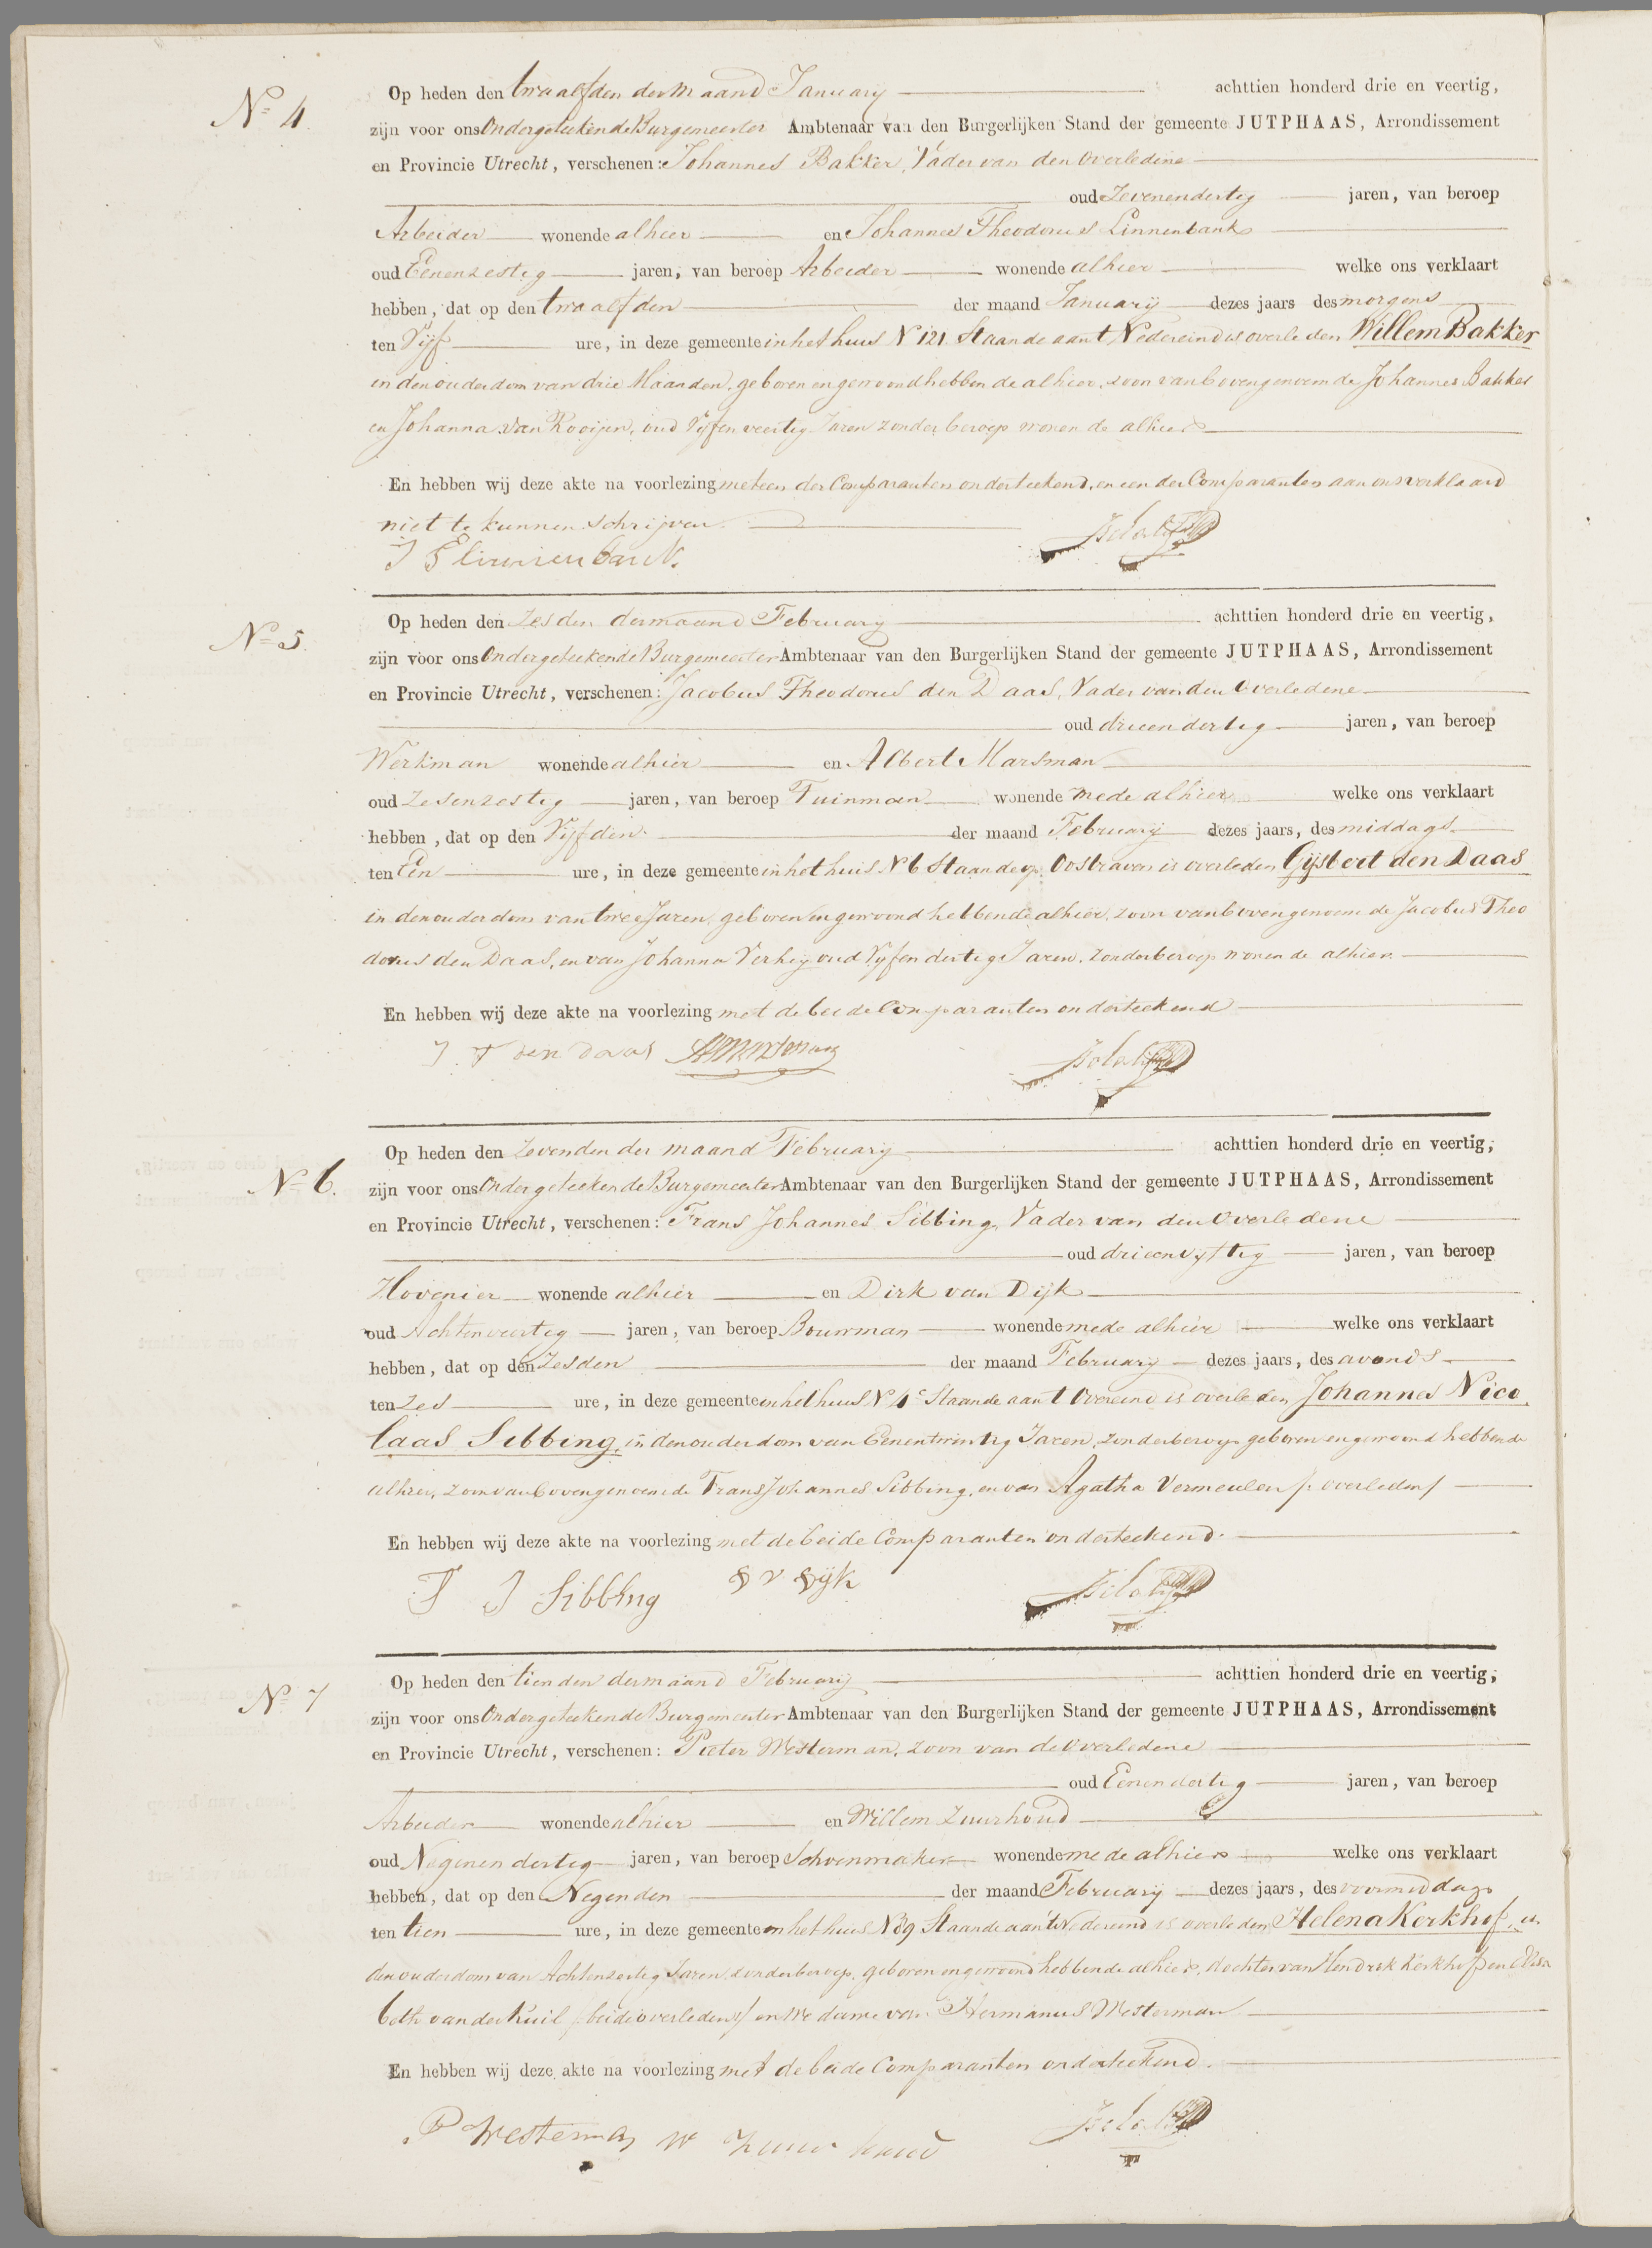 Nº 4.
Op heden den twaalfden der maand January achttien honderd drie en veertig,
zijn voor ons Ondergeteekende Burgemeester Ambtenaar van den Burgerlijken Stand der gemeente JUTPHAAS, Arrondissement
en Provincie Utrecht, verschenen: Johannes Bakker, Vader van den Overledene
oud Zevenendertig jaren, van beroep
Arbeider wonende alhier en Johannes Theodorus Linnenbank
oud Eenenzestig jaren, van beroep Arbeider wonende alhier welke ons verklaart
hebben, dat op den twaalfden der maand January dezes jaars des morgens
ten Vijf ure, in deze gemeente in het huis Nº 121 Staande aan t Nedereind is overleden Willem Bakker
in den ouderdom van drie Maanden, geboren en gewoond hebbende alhier, zoon van bovengenoemde Johannes Bakker
en Johanna van Rooijen, oud Vijfenveertig Jaren zonder beroep wonende alhier
En hebben wij deze akte na voorlezing met een der Comparanten onderteekend, en een der Comparanten aan ons verklaard
niet te kunnen schrijven.
J T Linnenbank.
Nº 5.
Op heden den Zesden der maand February achttien honderd drie en veertig,
zijn voor ons Ondergeteekende Burgemeester Ambtenaar van den Burgerlijken Stand der gemeente JUTPHAAS, Arrondissement
en Provincie Utrecht, verschenen: Jacobus Theodorus den Daas, Vader van den Overledene
oud drieendertig jaren, van beroep
Werkman wonende alhier en Albert Marsman
oud Zesenzestig jaren, van beroep Tuinman wonende mede alhier welke ons verklaart
hebben, dat op den Vijfden der maand February dezes jaars, des middags
ten Een ure, in deze gemeente in het huis Nº 6 Staande op Oostraven is overleden Gijsbert den Daas
in den ouderdom van twee Jaren, geboren en gewoond hebbende alhier, zoon van bovengenoemde Jacobus Theo
dorus den Daas, en van Johanna Verheij oud Vijfendertig Jaren, zonder beroep wonende alhier
En hebben wij deze akte na voorlezing met de beide Comparanten onderteekend
J T den Daas A Marsman
Nº 6.
Op heden den Zevenden der maand February achttien honderd drie en veertig,
zijn voor ons Ondergeteekende Burgemeester Ambtenaar van den Burgerlijken Stand der gemeente JUTPHAAS, Arrondissement
en Provincie Utrecht, verschenen: Frans Johannes Sibbing, Vader van den Overledene
oud drieenvijftig jaren, van beroep
Hovenier wonende alhier en Dirk van Dijk
oud Achtenveertig jaren, van beroep Bouwman wonende mede alhier welke ons verklaart
hebben, dat op den Zesden der maand February dezes jaars, des avonds
ten Zes ure, in deze gemeente in het huis Nº 4c Staande aan t Overeind is overleden Johannes Nico
laas Sibbing, in den ouderdom van Eenentwintig Jaren, zonder beroep geboren en gewoond hebbende
alhier, zoon van bovengenoemde Frans Johannes Sibbing, en van Agatha Vermeulen /: overleden /
En hebben wij deze akte na voorlezing met de beide Comparanten onderteekend.
F J Sibbing D v Dijk
Nº 7
Op heden den tienden der maand February achttien honderd drie en veertig,
zijn voor ons Ondergeteekende Burgemeester Ambtenaar van den Burgerlijken Stand der gemeente JUTPHAAS, Arrondissement
en Provincie Utrecht, verschenen: Pieter Westerman, zoon van de Overledene
oud Eenendertig jaren, van beroep
Arbeider wonende alhier en Willem Zuurhoud
oud Negenendertig jaren, van beroep Schoenmaker wonende mede alhier welke ons verklaart
hebben, dat op den Negenden der maand February dezes jaars, des voormiddags
ten tien ure, in deze gemeente in het huis Nº 39 Staande aan t Nedereind is overleden Helena Kerkhof, in
den ouderdom van Achtenzestig Jaren, zonder beroep, geboren en gewoond hebbende alhier, dochter van Hendrik Kerkhof en Elisa
beth van der Kuil /: beide overleden :/ en Weduwe van Hermanus Westerman
En hebben wij deze akte na voorlezing met de beide Comparanten onderteekend.
P Westerman W Zuurhoud